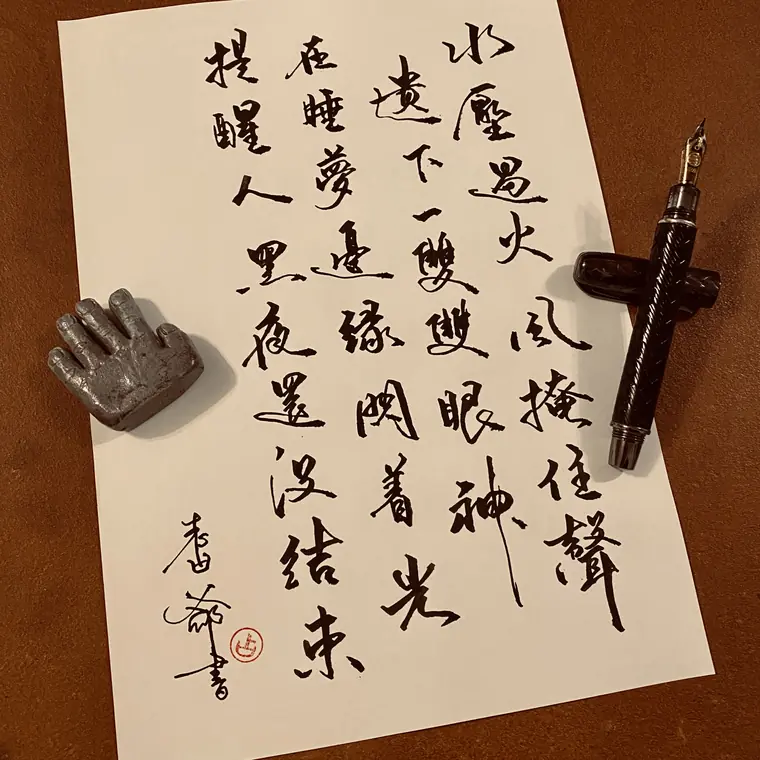 水壓過火 風掩住聲
遺下一雙雙眼神
在睡夢邊緣閃着光
提醒人黑夜還沒結束
書